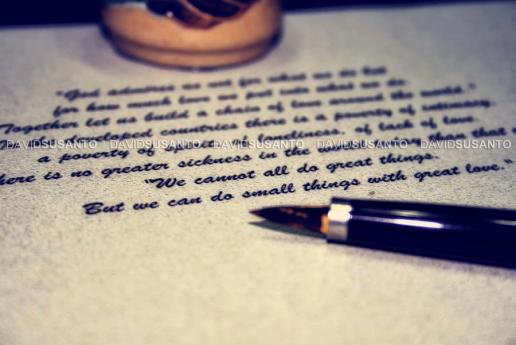 "God admires us not for what we do but
for how much love we put into what we do.
Together let us build a chain of love around the world."
developed countries there is a poverty of intimacy,
a poverty of loneliness, of lack of love.
There is no greater sickness in the than that
"We cannot all do great things.
But we can do small things with great love."
DAVIDSUSANTO DAVIDSUSANTO DAVIDSUSANTO DAVIDSUSANTO DAVIDSUSANTO